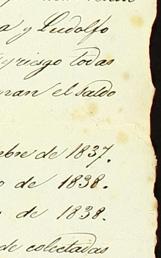 a y Ludolfo
y riesgo todas
man el saldo
bre de 1837.
o de 1838.
o de 1838.
de colectadas